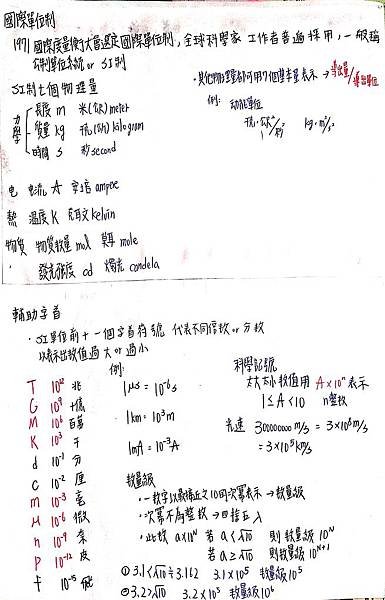 國際單位制
1971 國際度量衡大會選定國際單位制,全球科學家工作者普遍採用,一般稱
公制單位系統 or SI制
SI制七個物理量
力學
長度 m 米(公尺) meter
質量 kg 千克(公斤) kilogram
時間 s 秒 second
電 電流 A 安培 ampere
熱 溫度 K 克耳文 kelvin
物質 物質數量 mol 莫耳 mole
發光強度 cd 燭光 candela
・其他物理量都可用7個基本量表示 → 導出量/導出單位
例: 動能單位
kg·m²/s²
輔助字首
・SI單位前+一個字首符號 代表不同倍數 or 分數
以表示出數值過大 or 過小
T 10¹² 兆
G 10⁹ 十億
M 10⁶ 百萬
K 10³ 千
d 10⁻¹ 分
c 10⁻² 厘
m 10⁻³ 毫
μ 10⁻⁶ 微
n 10⁻⁹ 奈
P 10⁻¹² 皮
f 10⁻¹⁵ 飛
例:
1μs = 10⁻⁶s
1km = 10³m
1mA = 10⁻³A
科學記號
太大太小數值用 A×10ⁿ 表示
1≤A<10 n整數
光速 300000000 m/s = 3×10⁸ m/s
= 3×10⁵ km/s
數量級
・一數字以最接近之10的次冪表示 → 數量級
・次冪不為整數 → 四捨五入
・此數 a×10ᴺ 若 a<√10 則數量級 10ᴺ
若 a≥√10 則數量級 10ᴺ⁺¹
① 3.1<√10≒3.162 3.1×10⁵ 數量級10⁵
② 3.2>√10 3.2×10⁵ 數量級10⁶